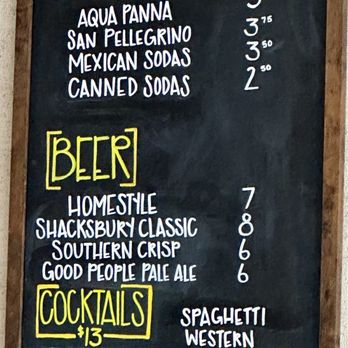 AQUA PANNA
SAN PELLEGRINO 3 75
MEXICAN SODAS 3 50
CANNED SODAS 2 50
[BEER]
HOMESTYLE 7
SHACKSBURY CLASSIC 8
SOUTHERN CRISP 6
GOOD PEOPLE PALE ALE 6
[COCKTAILS]
$13
SPAGHETTI
WESTERN